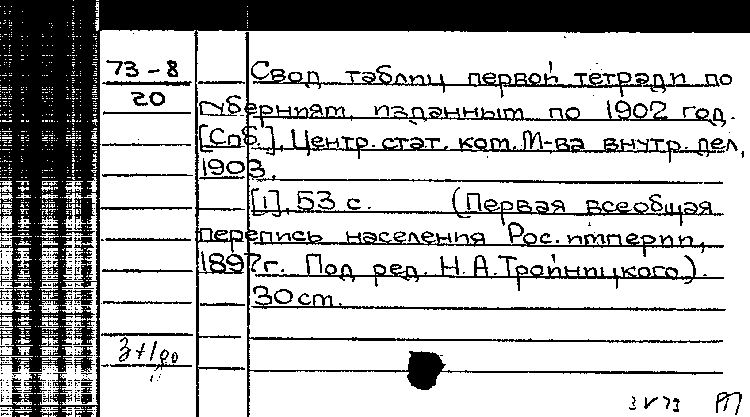 73-8
20
Свод таблиц первой тетради по
губерниям, изданным по 1902 год.
[Спб.], Центр. стат. ком. М-ва внутр. дел,
1903.
[1], 53 с. (Первая всеобщая
перепись населения Рос. империи,
1897г. Под ред. Н.А. Тройницкого).
30см.
3 V 73